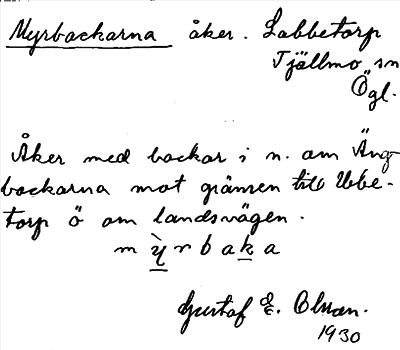 Myrbackarna åker. Labbetorp
Tjällmo sn
Ögl.
Åker med backar i n. om Äng-
backarna mot gränsen till Ubbe-
torp ö om landsvägen.
m ỳ r b a k a
Gustaf E. Olsson.
1930